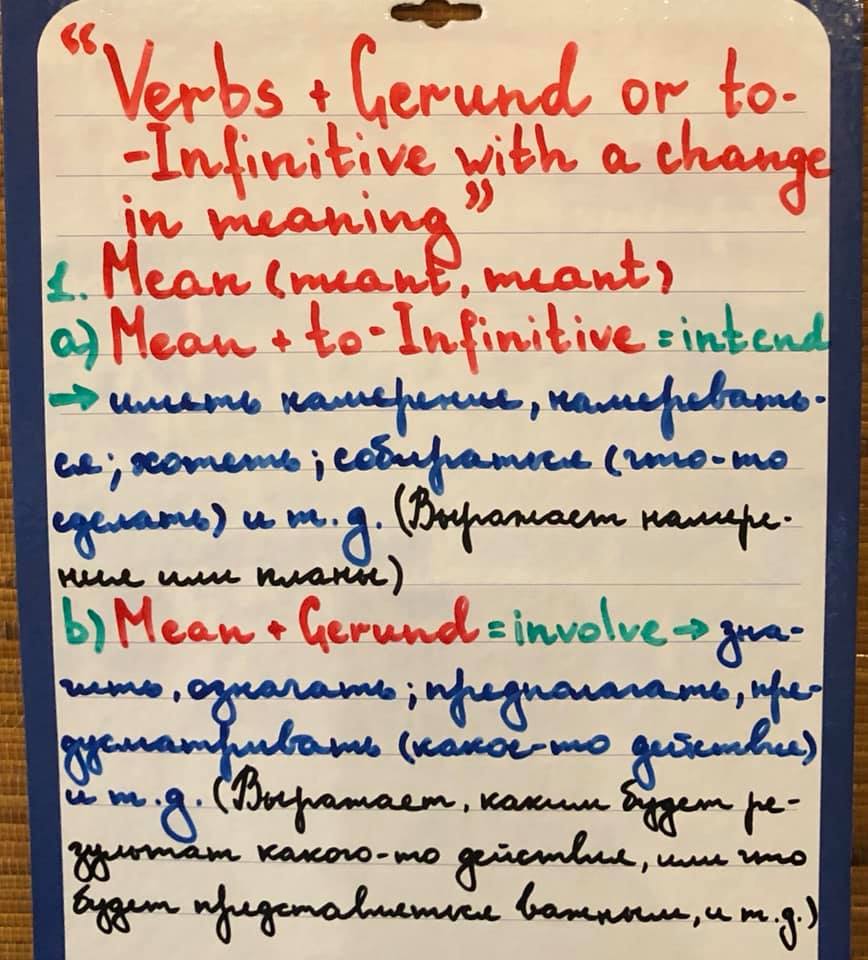 “Verbs + Gerund or to-
-Infinitive with a change
in meaning”
1. Mean (meant, meant)
a) Mean + to-Infinitive = intend
→ иметь намерение, намеревать-
ся; хотеть; собираться (что-то
сделать) и т.д. (Выражает намере-
ние или планы)
b) Mean + Gerund = involve → зна-
чить, означать; предполагать, пре-
дусматривать (какое-то действие)
и т.д. (Выражает, каким будет ре-
зультат какого-то действия, или что
будет представляться важным, и т.д.)